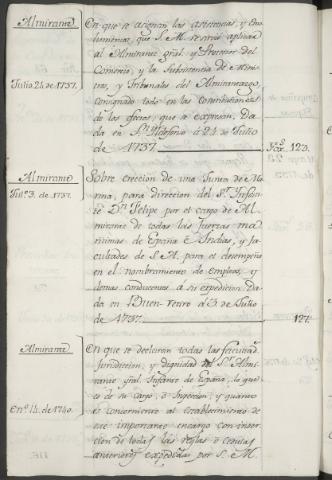 Almirante
En que se asignan las asistencias, y Emo-
lumentos, que S. M. se sirvió aplicar
al Almirante gral. y Protector del
Comercio, y la Subsistencia de Minis-
tros, y Tribunales del Almirantazgo,
consignado todo en las Contribuciones
de los efectos, que se expresan. Da-
da en Sn. Yldefonso à 24 de Julio
de 1737.
123.
Julio 24 de 1737.
Almirante
Sobre ereccion de una Junta de Ma-
rina, para direccion del Sr. Infan-
te Dn. Felipe por el cargo de Al-
mirante de todas las fuerzas ma-
ritimas de España è Yndias, y fa-
cultades de S. A. para el desempeño
en el nombramiento de Empleos, y
demas conducentes à su expedicion. Da-
da en Buen-Retiro à 3 de Julio
de 1737.
124.
Jul.º 3. de 1737.
Almirante
En que se declaran todas las facultads.
Jurisdiccion, y dignidad del Sr. Almi-
rante gral. Infante de España, lo que
es de su cargo, è Inspeccion, y quanto
es concerniente al establecimiento de
este importante encargo con inser-
cion de todas las reglas ò cedulas
anteriores expedidas por S. M.
En.º 14. de 1740.